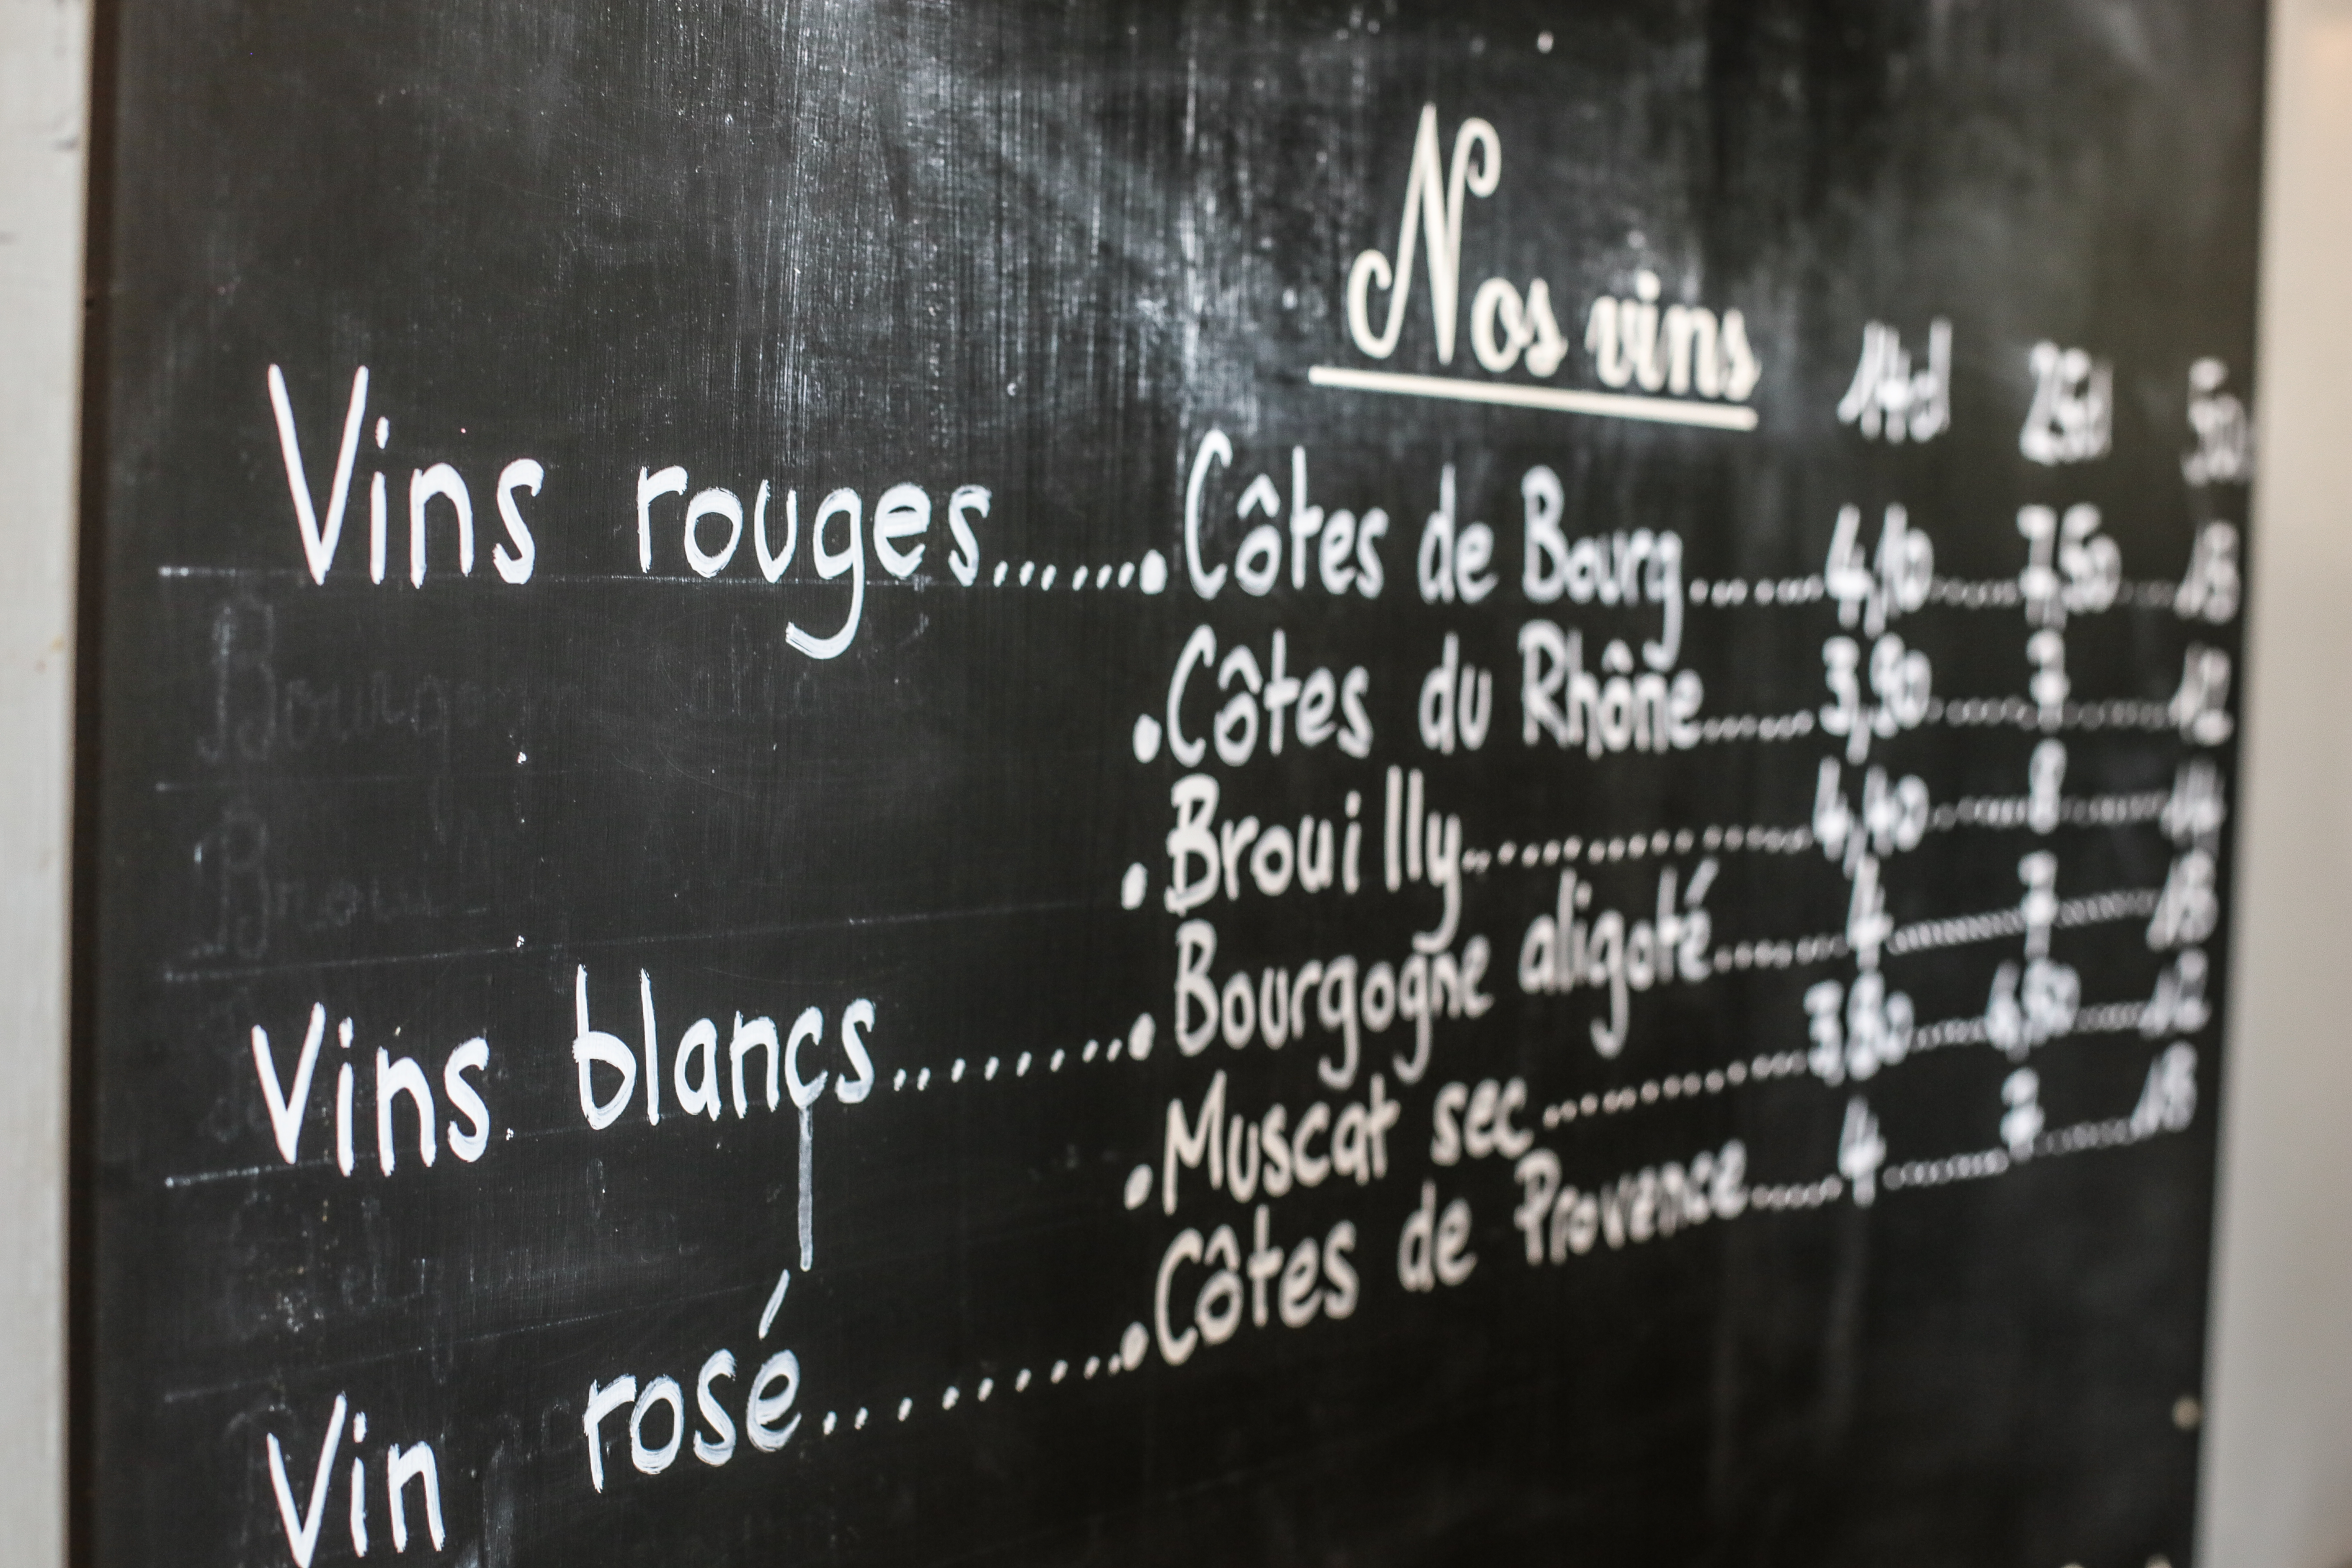 Nos vins 14cl 25cl 50
Vins rouges......•Côtes de Bourg......4,10......7,50......
•Côtes du Rhône......3,90......7......12
•Brouilly...............4,40......8......14
Vins blancs........•Bourgogne aligoté......4......7......13
•Muscat sec............3,80......6,50......12
Vin rosé..........•Côtes de Provence......4......7......13